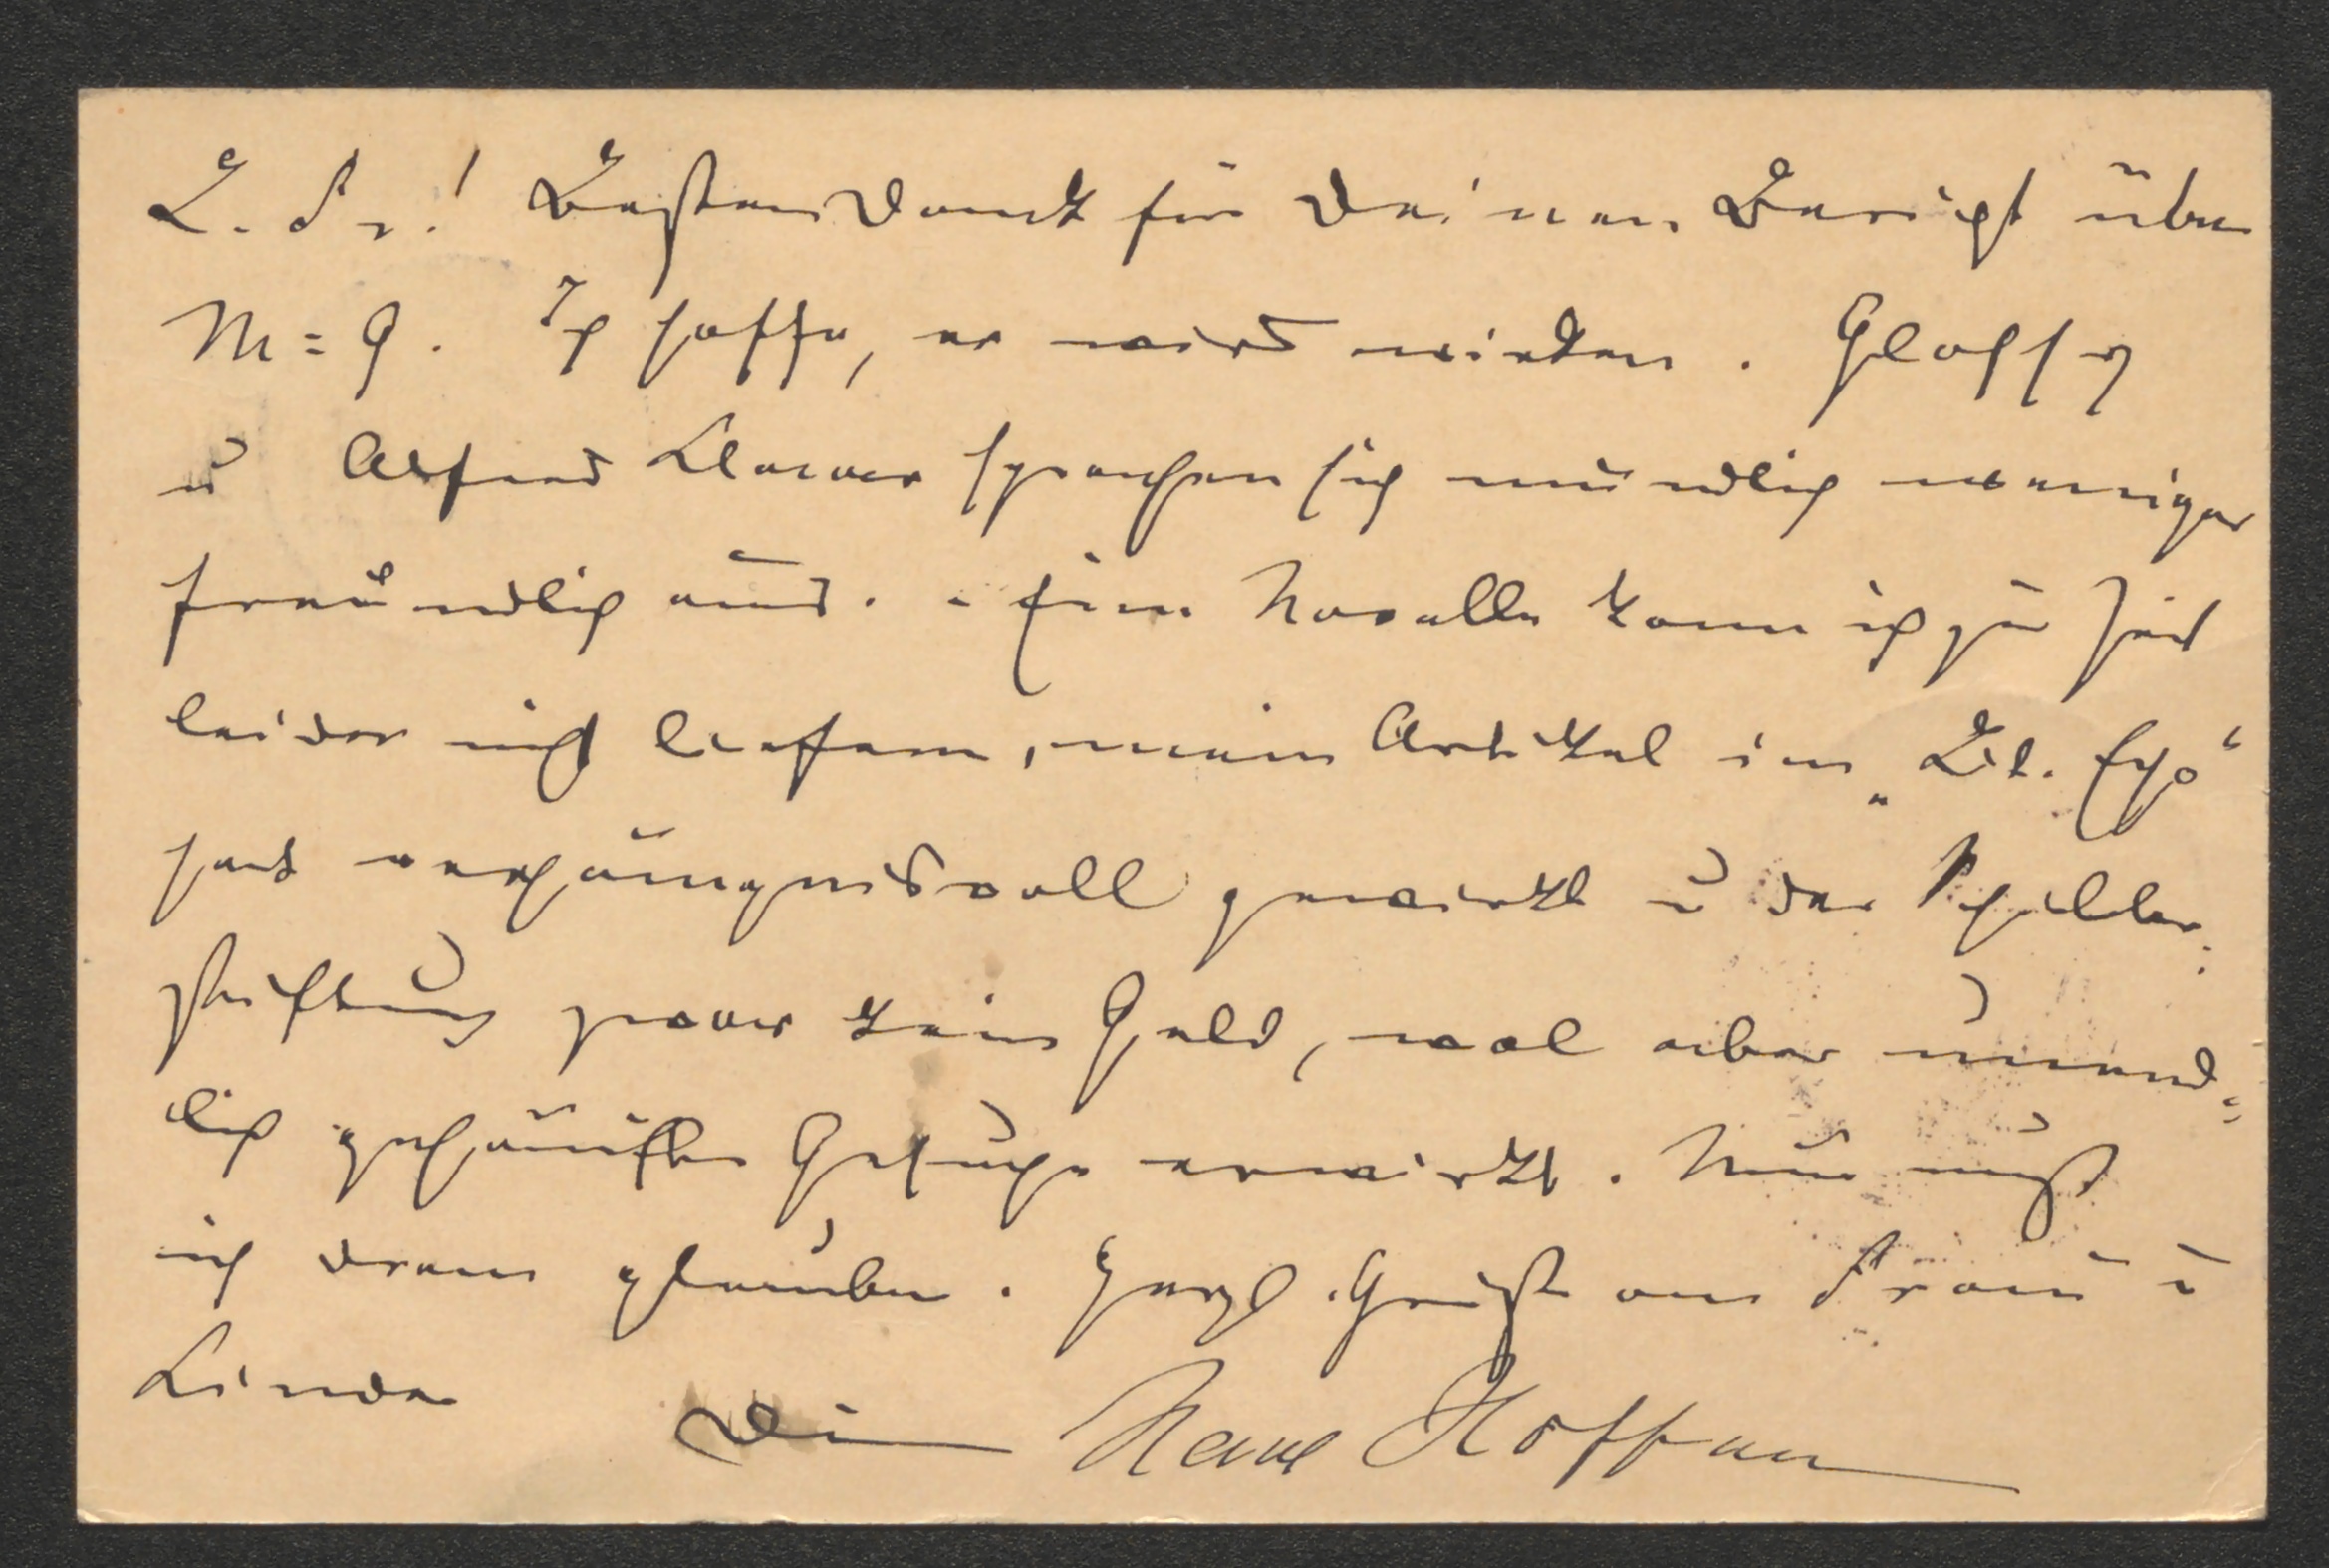 L. Fr.! Besten Dank für Deinen Bericht über
M=G. Ich hoffe, er wird wirken. Glossy
u Alfred Klaar sprachen sich mündlich weniger
freundlich aus. - Eine Novelle kann ich zur Zeit
leider nicht liefern, mein Artikel im „Lit. Echo“
hat verhängnisvoll gewirkt u der Schiller-
stiftung zwar kein Geld, wol aber unend=
lich gehäufte Gesuche erwirkt. Nun muß
ich dran glauben. Herzl. Grüße an Frau u
Kinder
Dein Hans Hoffmann